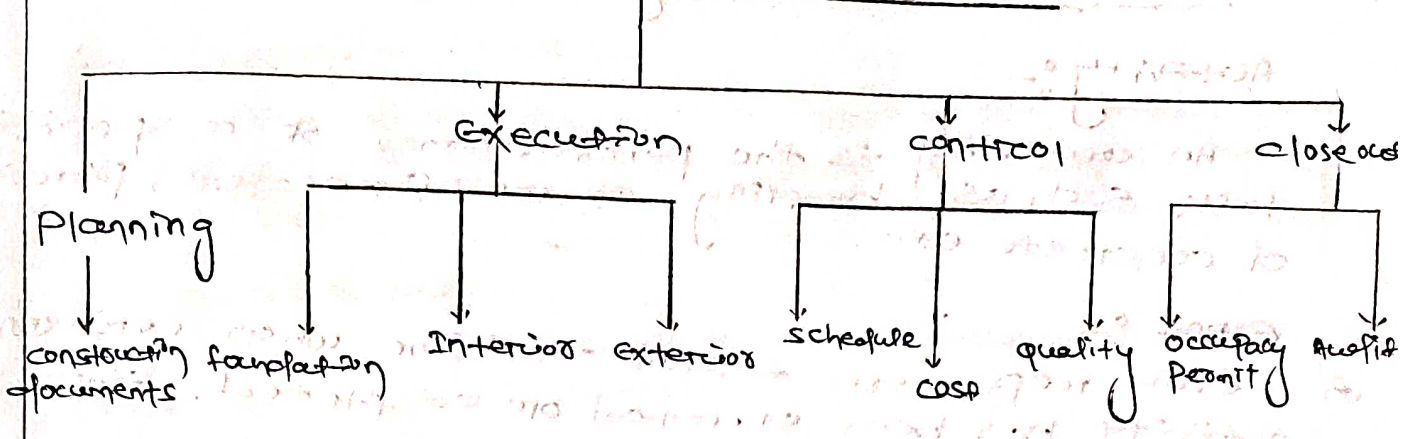 Execution
control
closeout
Planning
construction
documents
foundation
Interior
exterior
schedule
cost
quality
occupacy
Permit
Audit